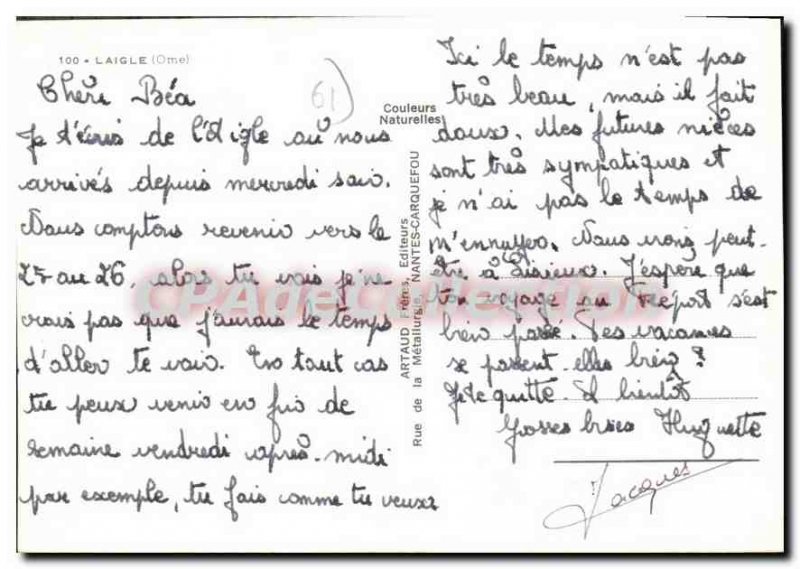 100 - LAIGLE (Orne)
61
Chère Béa
Je t'écris de l'Aigle où nous
arrivés depuis mercredi soir.
Nous comptons revenir vers le
25 au 26, alors tu vois je ne
crois pas que j'aurais le temps
d'aller te voir. En tout cas
tu peux venir en fin de
semaine vendredi après-midi
par exemple, tu fais comme tu veux
Couleurs
Naturelles
ARTAUD Frères, Editeurs
Rue de la Métallurgie, NANTES-CARQUEFOU
Ici le temps n'est pas
très beau, mais il fait
doux. Mes futures nièces
sont très sympatiques et
je n'ai pas le temps de
m'ennuyer. Nous irons peut-
être à Lisieux. J'espère que
ton voyage au Tréport s'est
bien passé. Tes vacances
se passent-elles bien ?
Je te quitte. A bientôt
Grosses bises Huguette
Jacques
CPAdeCollection